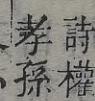 詩權
孝孫